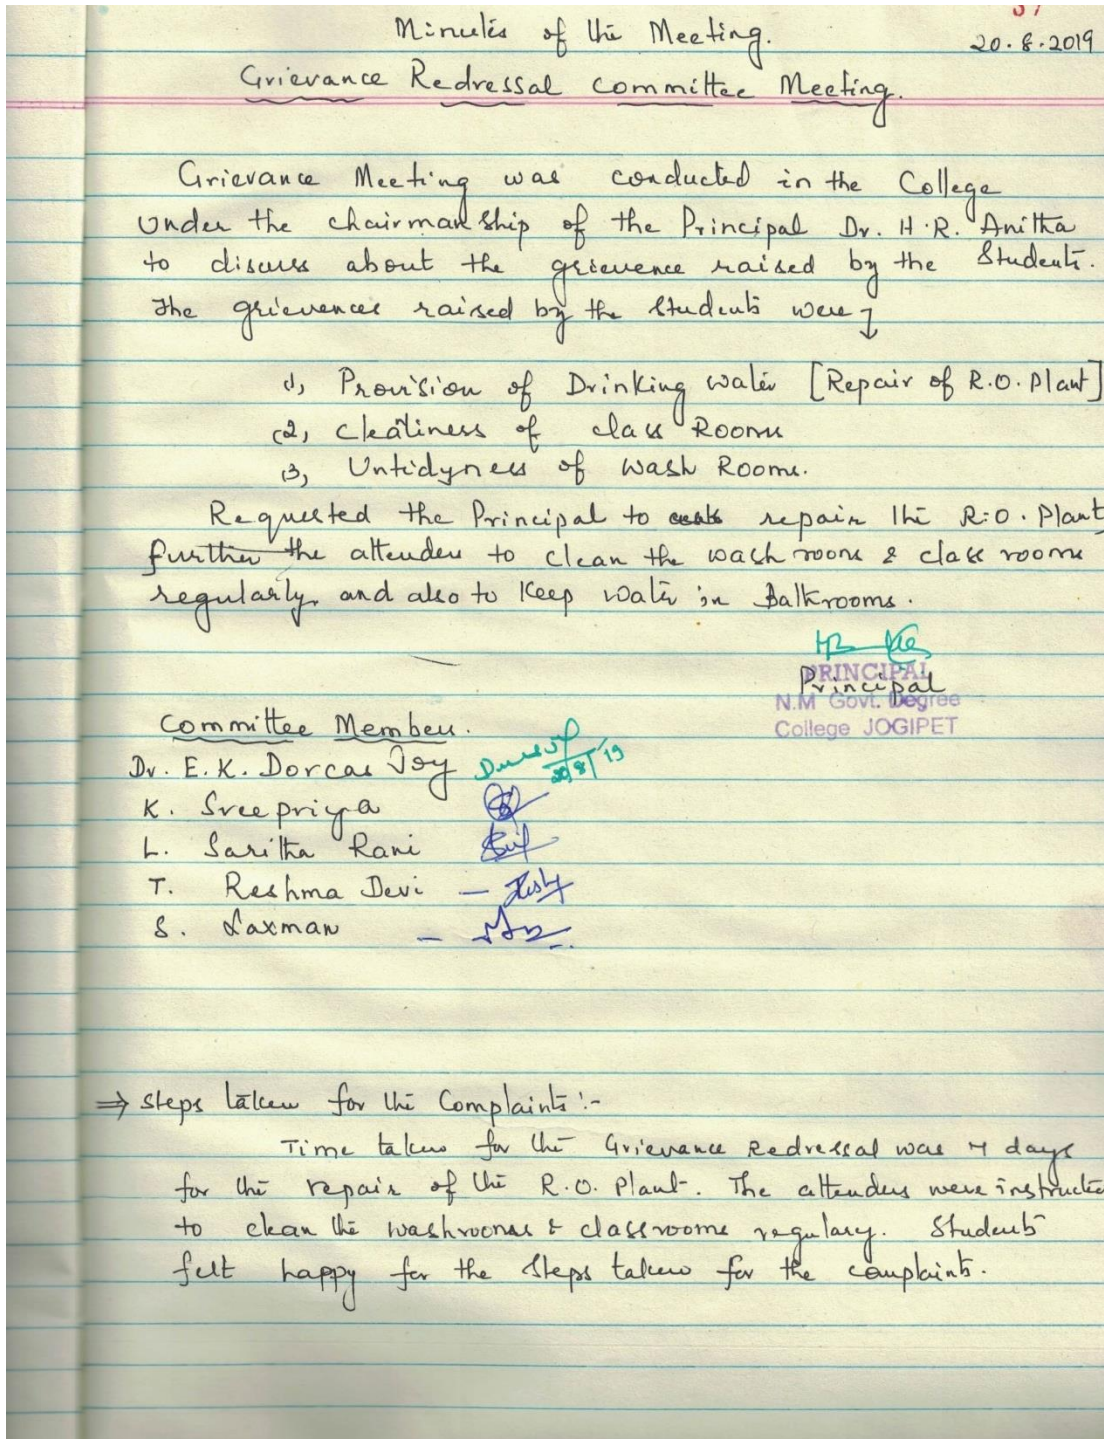 Minutes of the Meeting.
20.8.2019
Grievance Redressal Committee Meeting.
Grievance Meeting was conducted in the College
Under the chairmanship of the Principal Dr. H.R. Anitha
to discuss about the grievence raised by the Students.
The grievences raised by the Students were
(1, Provision of Drinking water [Repair of R.O. Plant]
(2, Cleatiness of class Rooms
(3, Untidyness of Wash Rooms.
Requested the Principal to repair the R.O. Plant,
further the attenders to clean the wash rooms & class rooms
regularly, and also to Keep water in Bathrooms.
PRINCIPAL
Principal
N.M Govt. Degree
College JOGIPET
Committee Members.
Dr. E.K. Dorcas Joy 20/8/19
K. Sreepriya
L. Saritha Rani
T. Reshma Devi -
S. Laxman -
⇒ Steps taken for the Complaints :-
Time taken for the Grievance Redressal was days
for the repair of the R.O. Plant. The attenders were instructe
to clean the washrooms & classrooms regulary. Students
felt happy for the steps taken for the complaints.